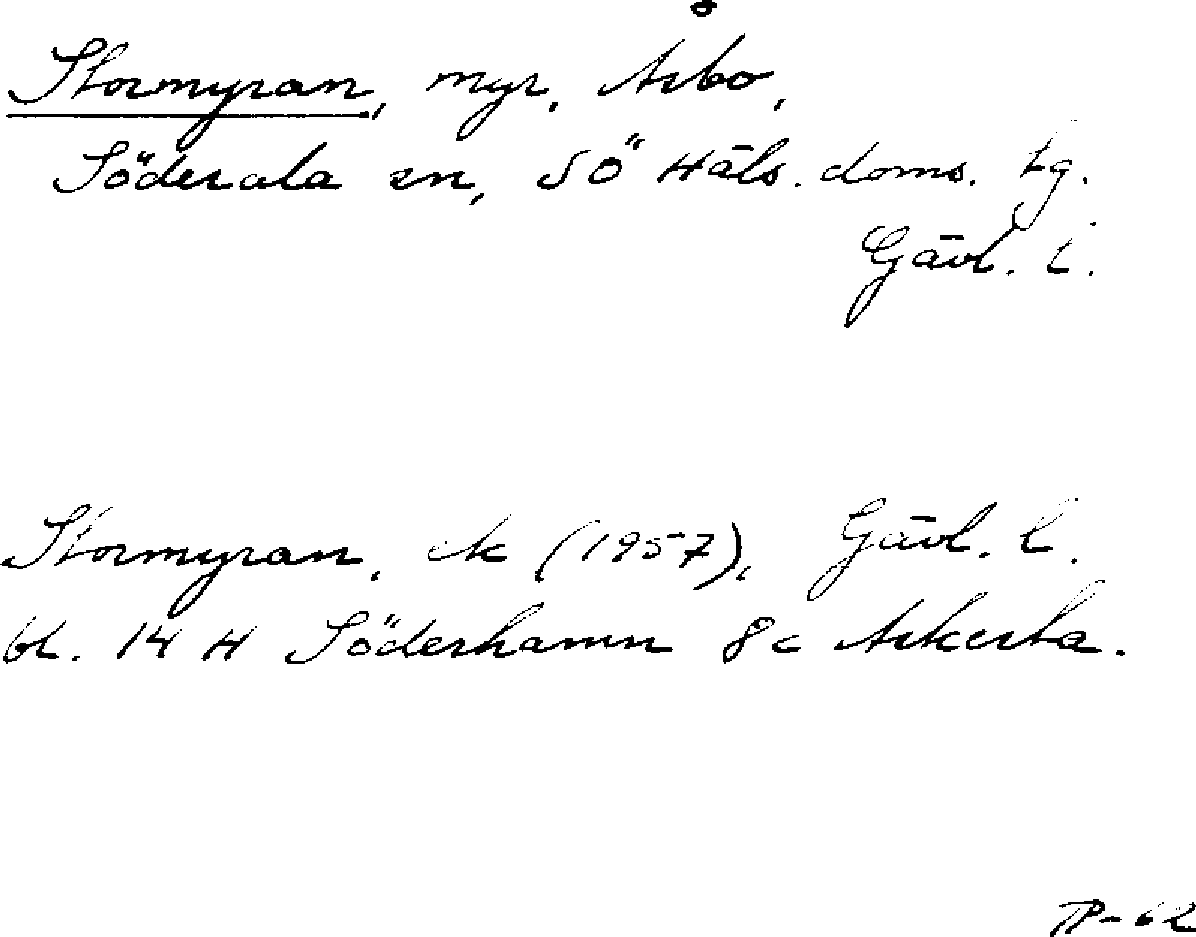 Stormyran, myr, Åsbo,
Söderala sn, SÖ Häls. doms. tg.
Gävl. l.
Stormyran, ek (1957), Gävl. l.
bl. 14 H Söderhamn 8 c Askesta.
TP-62